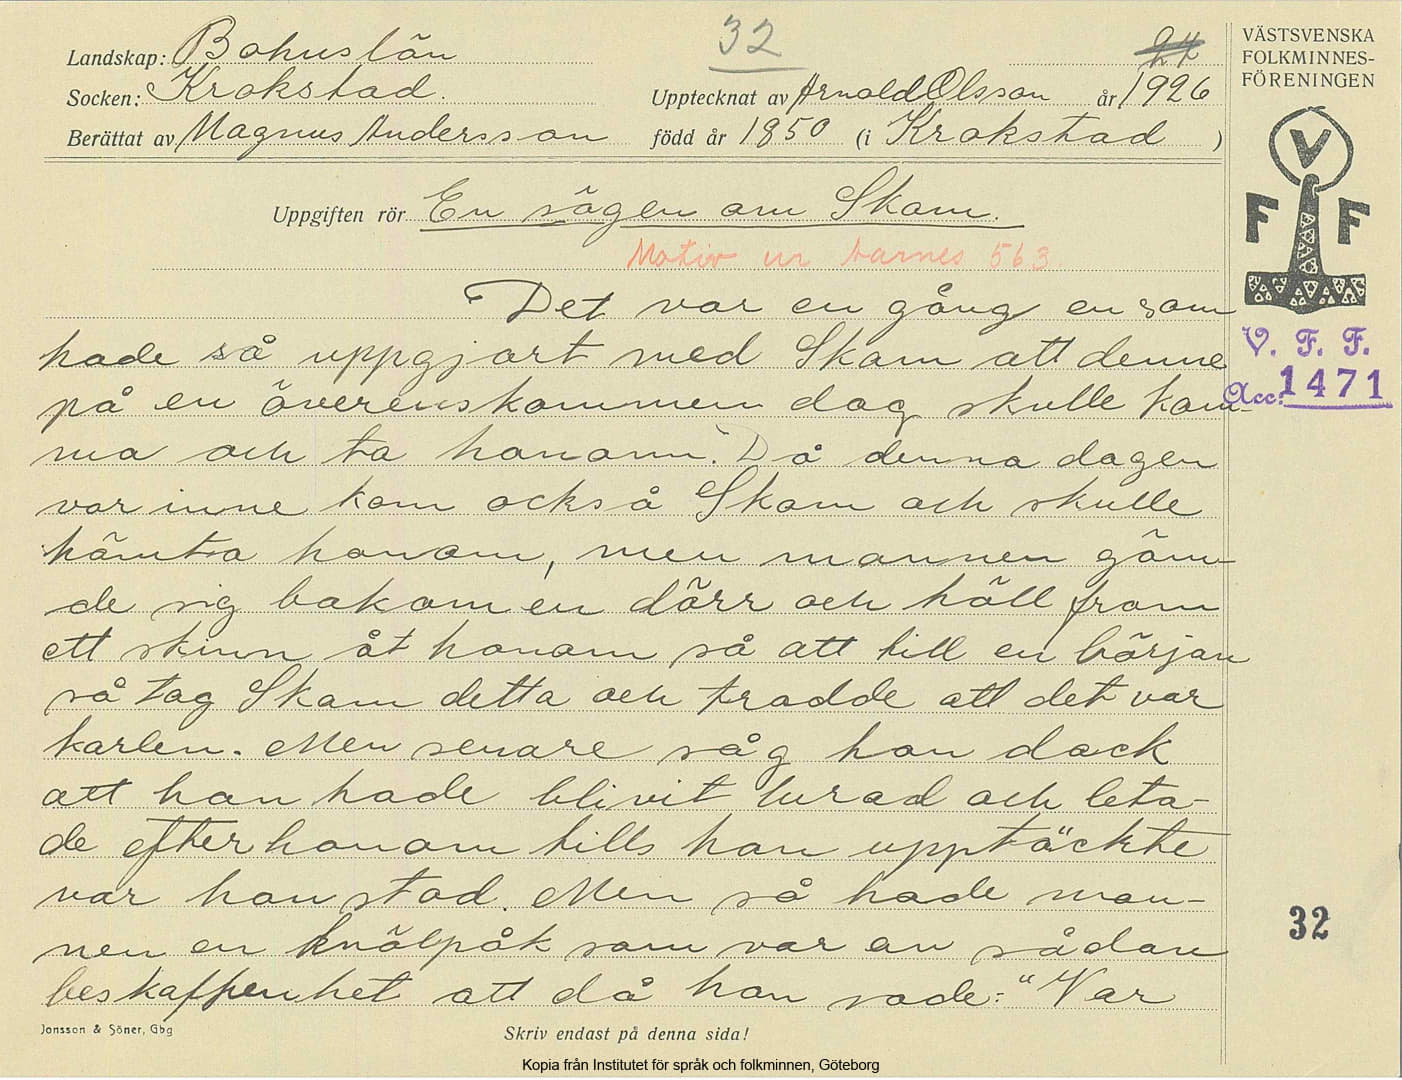 32
24
Landskap: Bohuslän
Socken: Krokstad. Upptecknat av Arnold Olsson år 1926
Berättat av Magnus Andersson född år 1850 (i Krokstad)
VÄSTSVENSKA
FOLKMINNES-
FÖRENINGEN
V
F F
V. F. F.
Acc: 1471
Uppgiften rör En sägen om Skam.
Motiv ur Aarnes 563.
Det var en gång en som
hade så uppgjort med Skam att denne
på en överenskommen dag skulle kom-
ma och ta honom. Då denna dagen
var inne kom också Skam och skulle
hämta honom, men mannen göm-
de sig bakom en dörr och höll fram
ett skinn åt honom så att till en början
så tog Skam detta och trodde att det var
karlen. Men senare såg han dock
att han hade blivit lurad och leta-
de efter honom tills han upptäckte
var han stod. Men så hade man-
nen en knölpåk som var av sådan
beskaffenhet att då han sade: "Var
32
Jonsson & Söner, Gbg
Skriv endast på denna sida!
Kopia från Institutet för språk och folkminnen, Göteborg